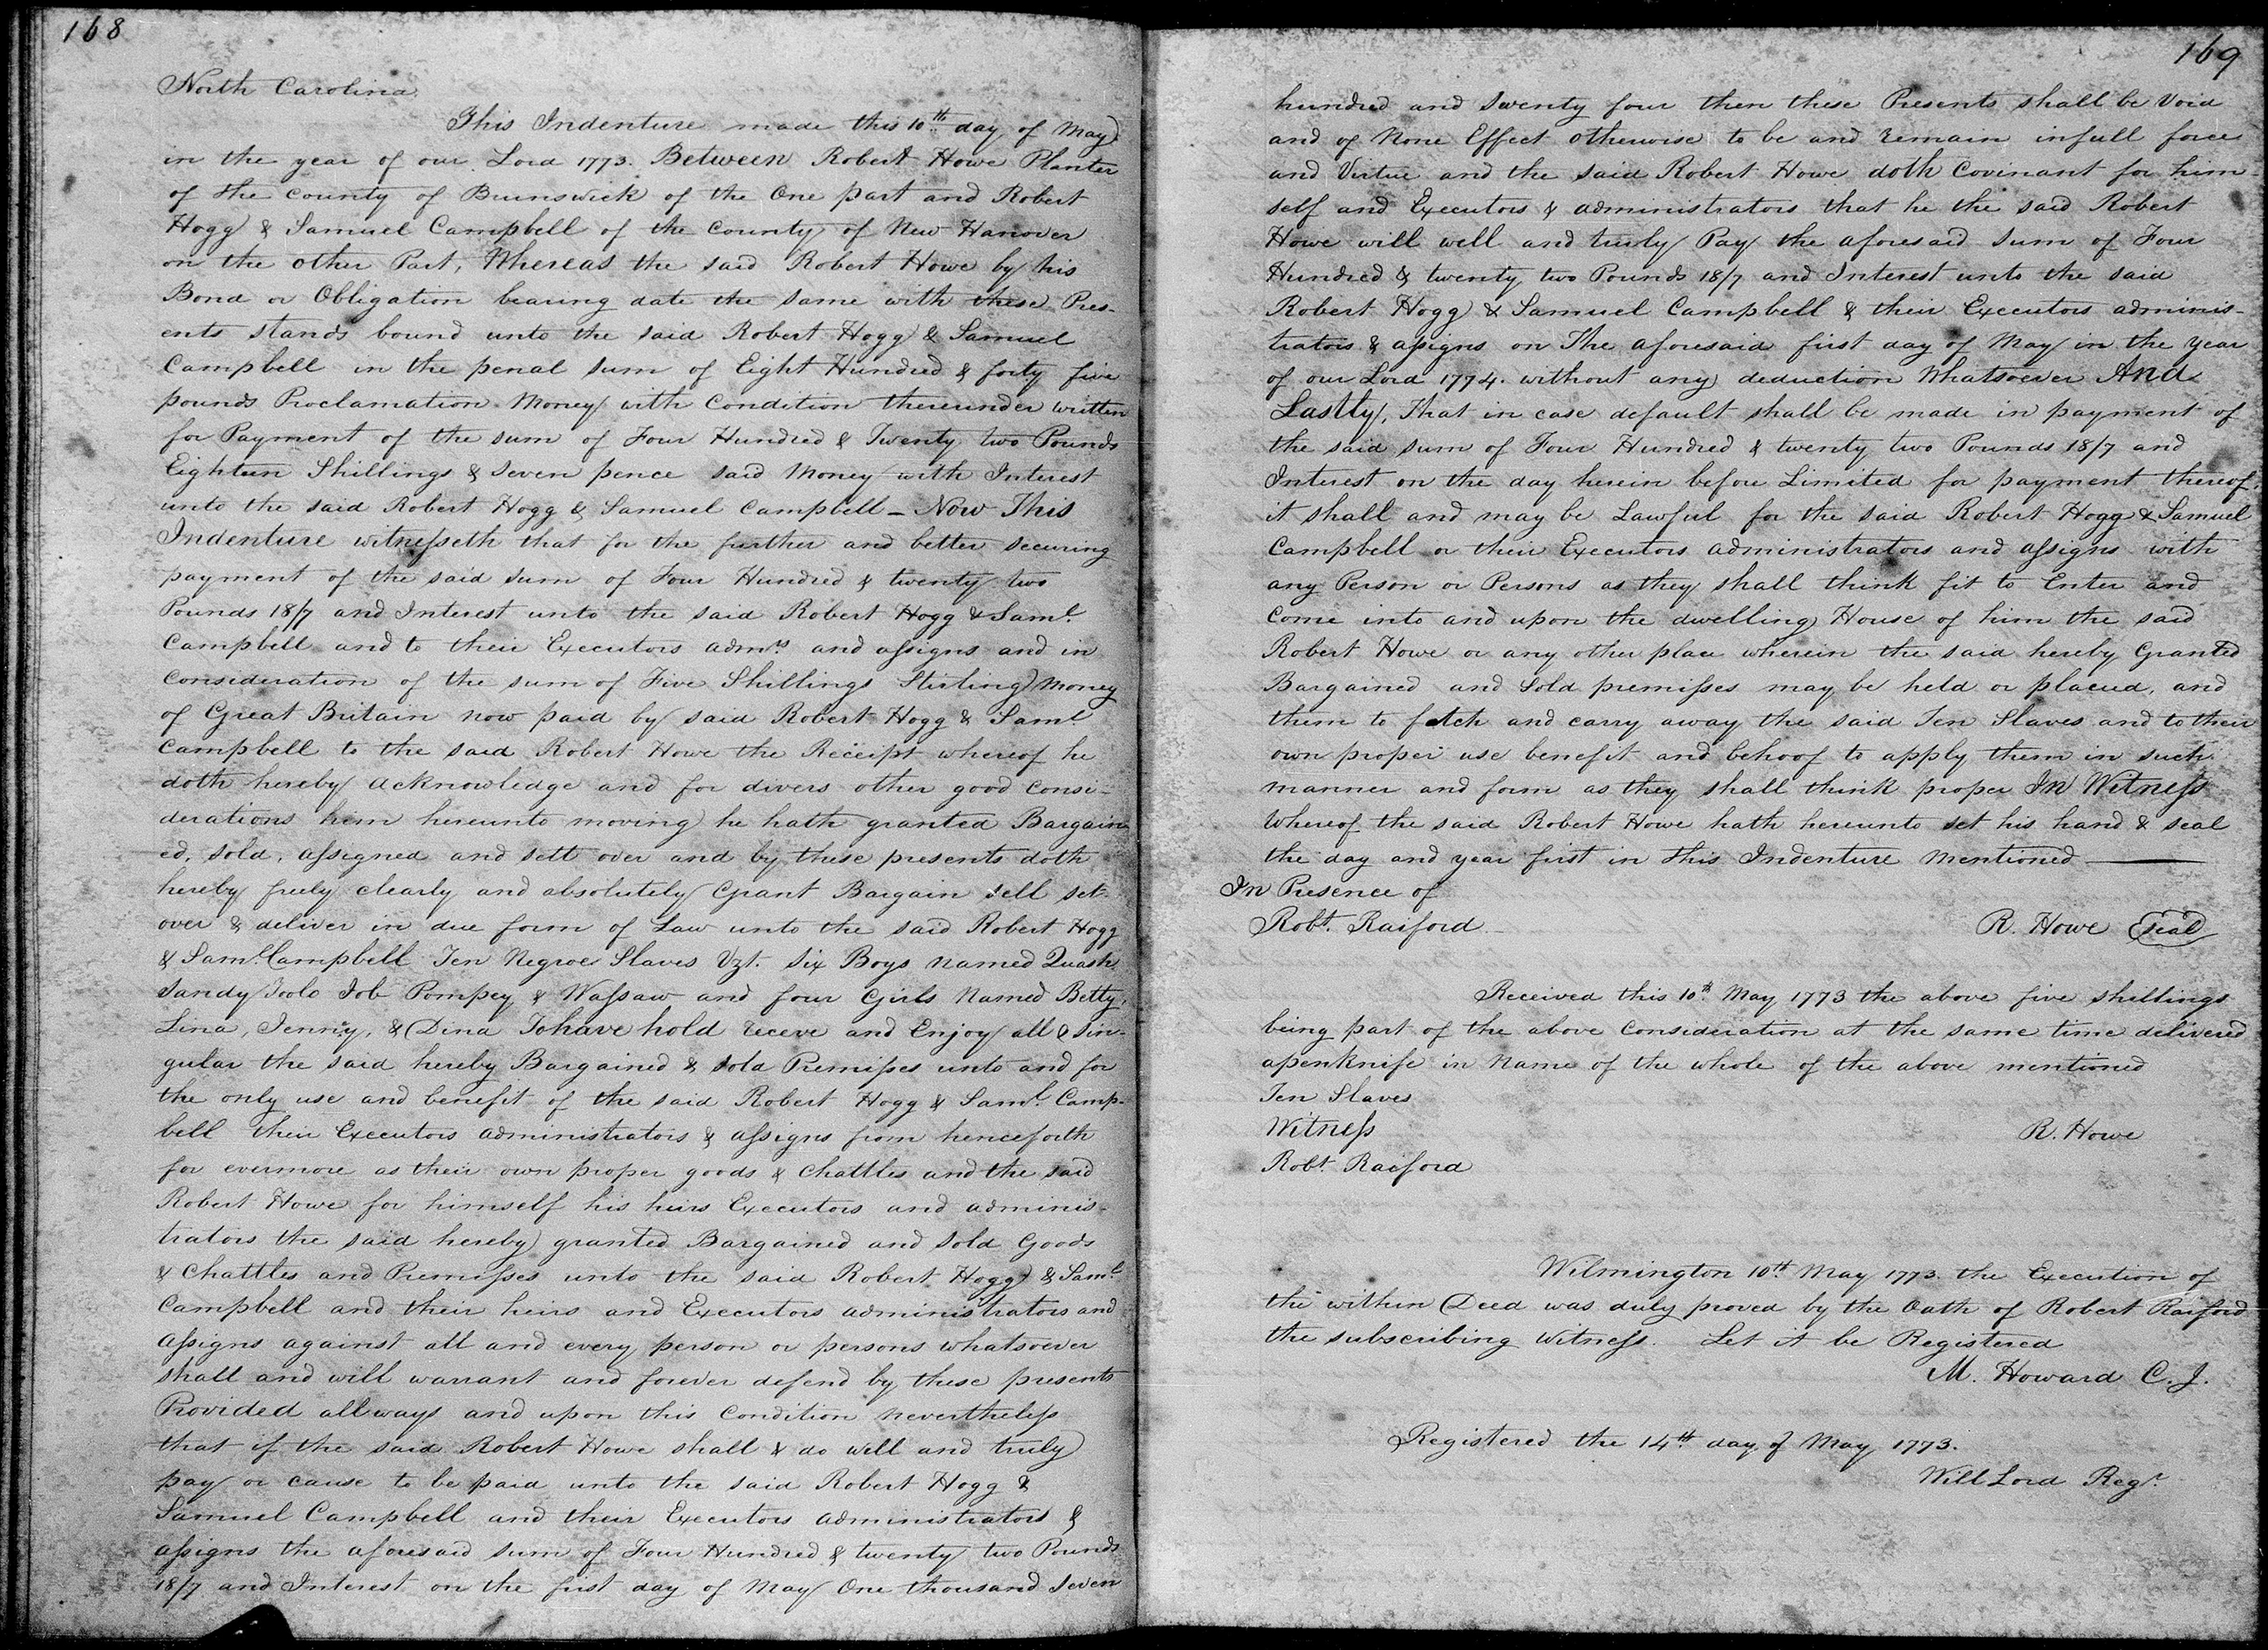 168
North Carolina.
This Indenture made this 10th day of May
in the year of our Lord 1773. Between Robert Howe Planter
of the County of Brunswick of the One part and Robert
Hogg & Samuel Campbell of the County of New Hanover
on the other Part, Whereas the said Robert Howe by his
Bond or Obligation bearing date the same with these Pres-
ents stands bound unto the said Robert Hogg & Samuel
Campbell in the penal sum of Eight Hundred & forty five
pounds Proclamation Money with Condition thereunder written
for Payment of the sum of Four Hundred & Twenty two Pounds
Eighteen Shillings & Seven pence said Money with Interest
unto the said Robert Hogg & Samuel Campbell - Now This
Indenture witnesseth that for the further and better securing
payment of the said sum of Four Hundred & twenty two
Pounds 18/7 and Interest unto the said Robert Hogg & Saml.
Campbell and to their Executors admrs and assigns and in
Consideration of the sum of Five Shillings Stirling Money
of Great Britain now paid by said Robert Hogg & Saml
Campbell to the said Robert Howe the Receipt whereof he
doth hereby acknowledge and for divers other good Consi-
derations him hereunto moving he hath granted Bargain
ed, sold, assigned and sett over and by these presents doth
hereby freely clearly and absolutely Grant Bargain sell set
over & deliver in due form of Law unto the said Robert Hogg
& Saml. Campbell Ten Negroe Slaves Vzt. Six Boys named Quash
Sandy Toolo Job Pompey & Wassaw and four Girls Named Betty,
Lina, Jenny, & Dina To have hold receve and Enjoy all & sin-
gular the said hereby Bargained & sold Premisses unto and for
the only use and benefit of the said Robert Hogg & Saml. Camp-
bell their Executors administrators & assigns from henceforth
for evermore as their own proper goods & Chattles and the said
Robert Howe for himself his heirs Executors and adminis-
trators the said hereby granted Bargained and sold Goods
& Chattles and Premisses unto the said Robert Hogg & Saml
Campbell and their heirs and Executors administrators and
assigns against all and every person or persons whatsoever
shall and will warrant and forever defend by these presents
Provided allways and upon this Condition nevertheless
that if the said Robert Howe shall & do well and truly
pay or cause to be paid unto the said Robert Hogg &
Samuel Campbell and their Executors administrators &
assigns the aforesaid sum of Four Hundred & twenty two Pounds
18/7 and Interest on the first day of May One thousand Seven
169
hundred and Seventy four then these Presents shall be Void
and of None Effect otherwise to be and remain infull force
and Virtue and the said Robert Howe doth Covinant for him-
self and Executors & administrators that he the said Robert
Howe will well and truly Pay the aforesaid Sum of Four
Hundred & twenty two Pounds 18/7 and Interest unto the said
Robert Hogg & Samuel Campbell & their Executors adminis-
trators & assigns on The aforesaid first day of May in the year
of our Lord 1774. without any deduction Whatsoever And
Lastly, That in case default shall be made in payment of
the said sum of Four Hundred & twenty two Pounds 18/7 and
Interest on the day herein before Limited for payment thereof,
it shall and may be Lawful for the said Robert Hogg & Samuel
Campbell or their Executors administrators and assigns with
any Person or Persons as they shall think fit to Enter and
Come into and upon the dwelling House of him the said
Robert Howe or any other place wherein the said hereby Granted
Bargained and Sold premisses may be held or placed, and
them to fetch and carry away the said Ten Slaves and to their
own proper use benefit and behoof to apply them in such
manner and form as they shall think proper In Witness
Whereof the said Robert Howe hath hereunto set his hand & seal
the day and year first in this Indenture mentioned
In Presence of
Robt. Raiford R. Howe Seal
Received this 10th May 1773 the above five shillings
being part of the above Consideration at the same time delivered
apenknife in Name of the whole of the above mentioned
Ten Slaves
Witness R. Howe
Robt. Raiford
Wilmington 10th May 1773. the Execution of
the within Deed was duly proved by the Oath of Robert Raiford
the subscribing Witness. Let it be Registered
M. Howard C. J.
Registered the 14th day of May 1773.
Will Lord Regr.